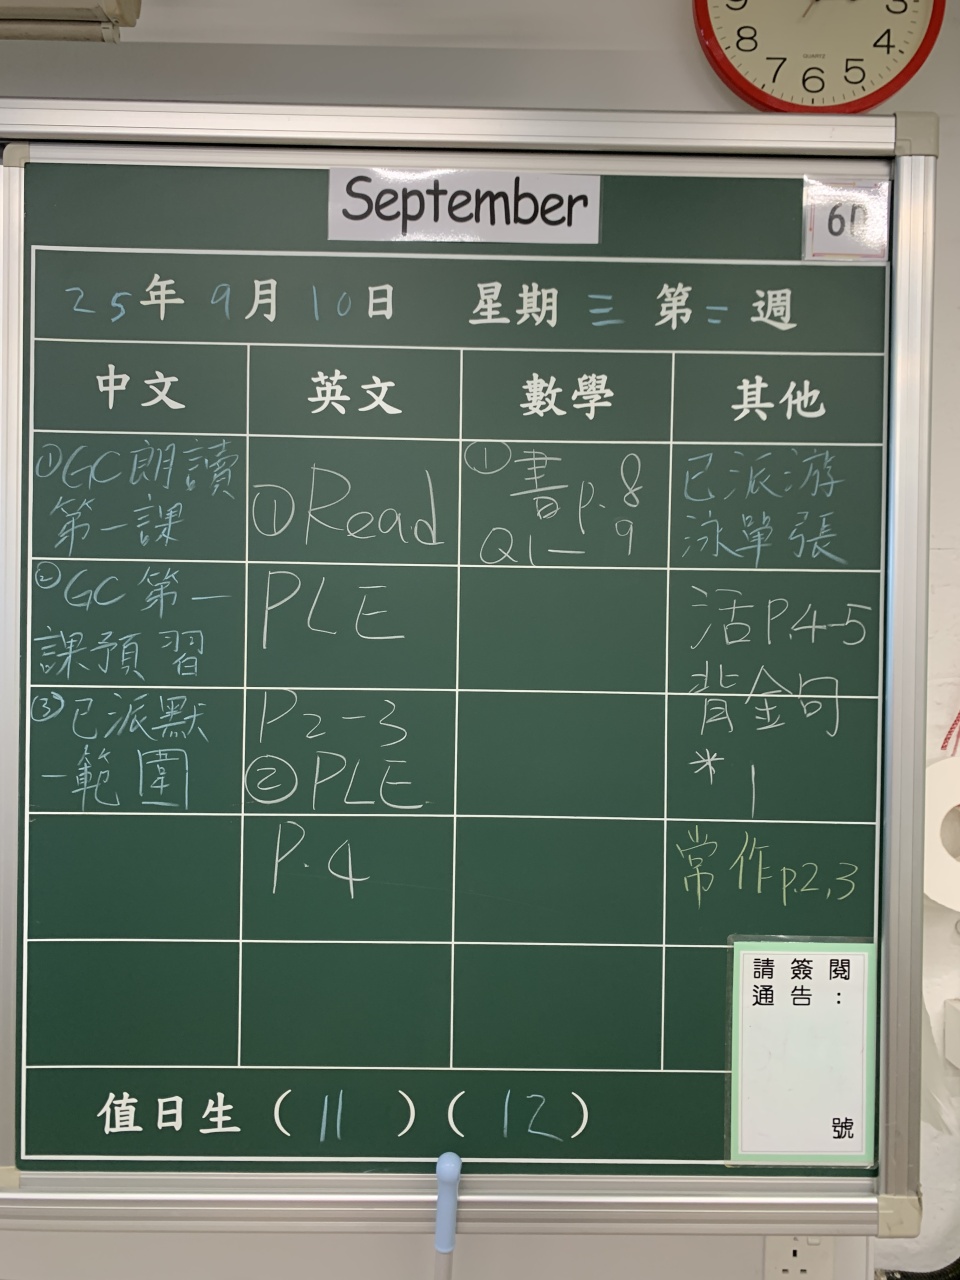 9 3
8 4
QUARTZ
7 6 5
September
6D
25年9月10日 星期三 第二週
中文 英文 數學 其他
①GC朗讀
第一課
②GC第一
課預習
③已派默
一範圍
①Read
PLE
P2-3
②PLE
P.4
①書p.8
Q1-9
已派游
泳單張
活P.4-5
背金句
*1
常作p.2,3
值日生(11)(12)
請簽閱
通告:
號